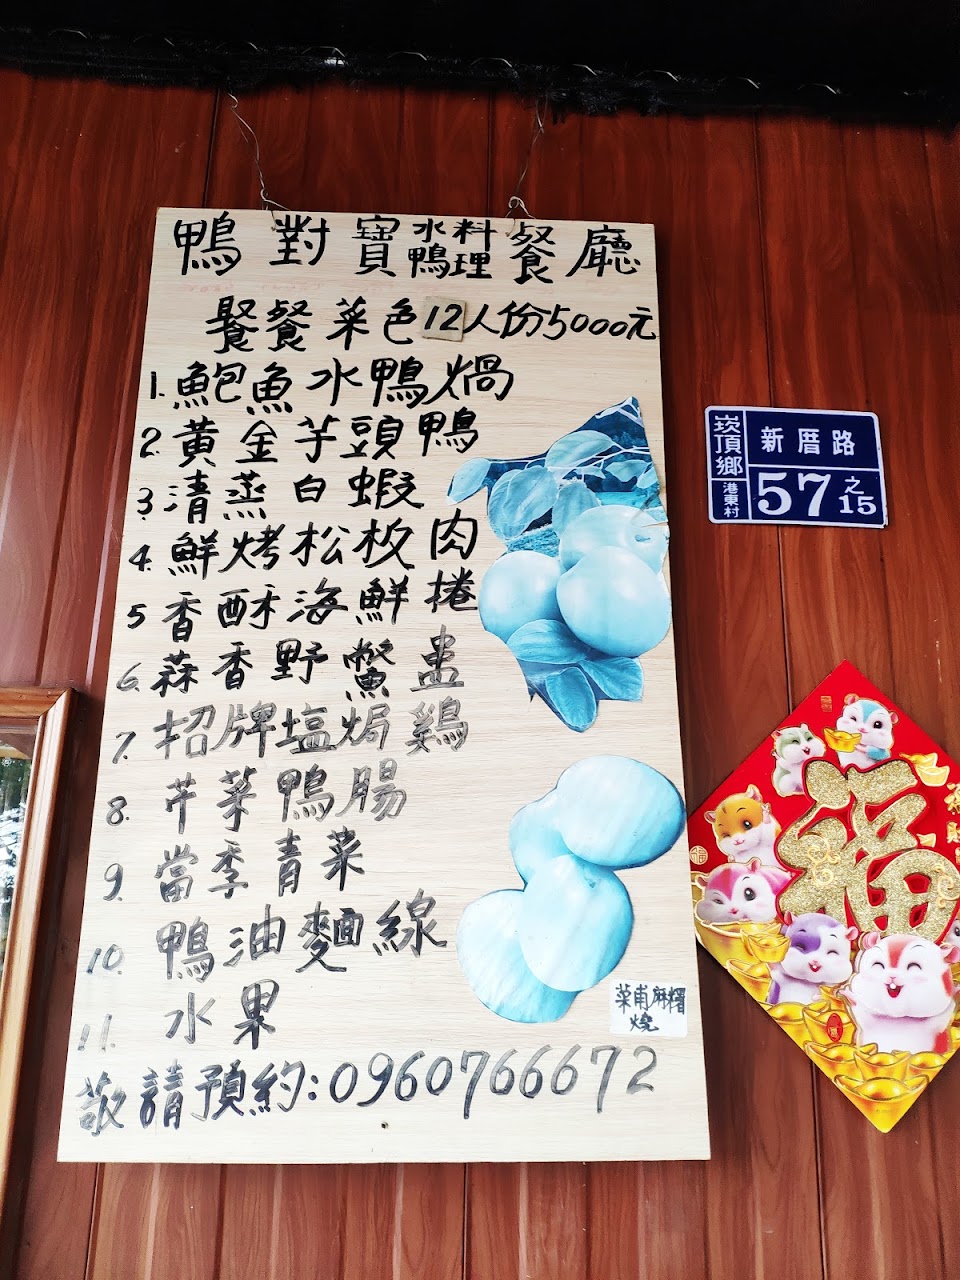 鴨對寶水鴨料理餐廳
饗餐菜色12人份5000元
1.鮑魚水鴨煱
2.黃金芋頭鴨
3.清蒸白蝦
4.鮮烤松板肉
5香酥海鮮捲
6.蒜香野鱉盅
7.招牌塩焗鷄
8.芹菜鴨腸
9.當季青菜
10.鴨油麵線
11.水果
敬請預約:0960766672
菜甫麻糬
燒
崁頂鄉
港東村
新厝路
57之15
福